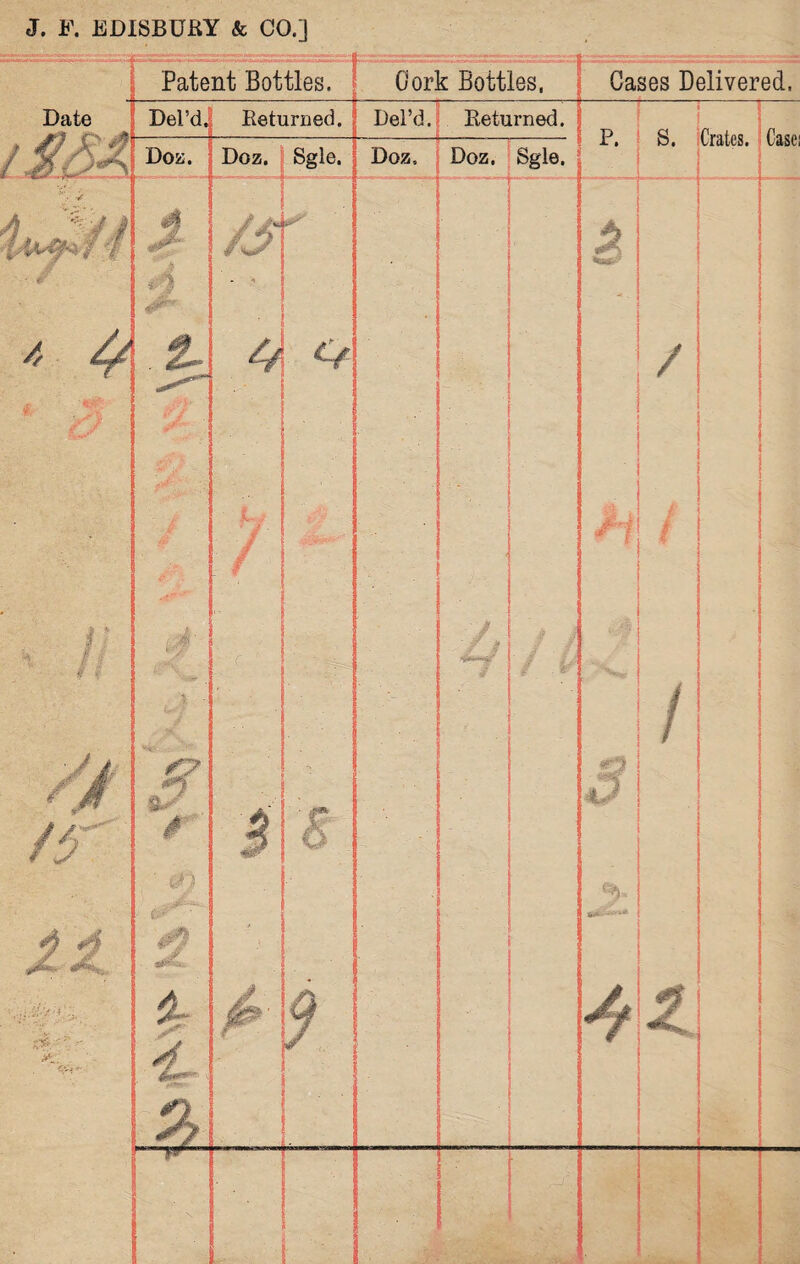 J. F. EDISBURY & CO.]
Patent Bottles. Cork Bottles. Cases Delivered.
Date Del’d. Returned. Del’d. Returned. P. S. Crates. Cases
1882 Doz. Doz. Sgle. Doz. Doz. Sgle.
2 15 3
2
4 2 4 4 1
8 2
2
1 7 2 4 1
2
11 2 4 10 2
2 1
14 3 3
15 3 8
2 2
22 2
2 6 9 4 2
2
3